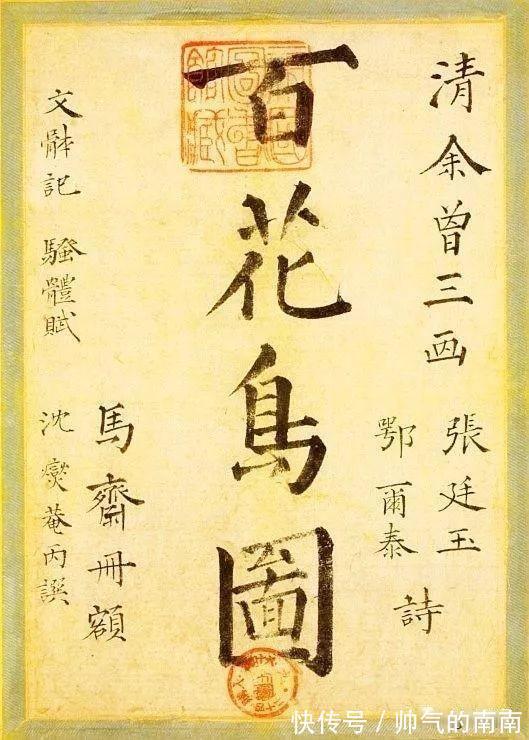 清余曾三画
張廷玉
鄂爾泰
詩
百花鳥圖
馬齋冊額
沈燮菴丙譔
文骵記 騷體賦
快传号 / 帅气的南南